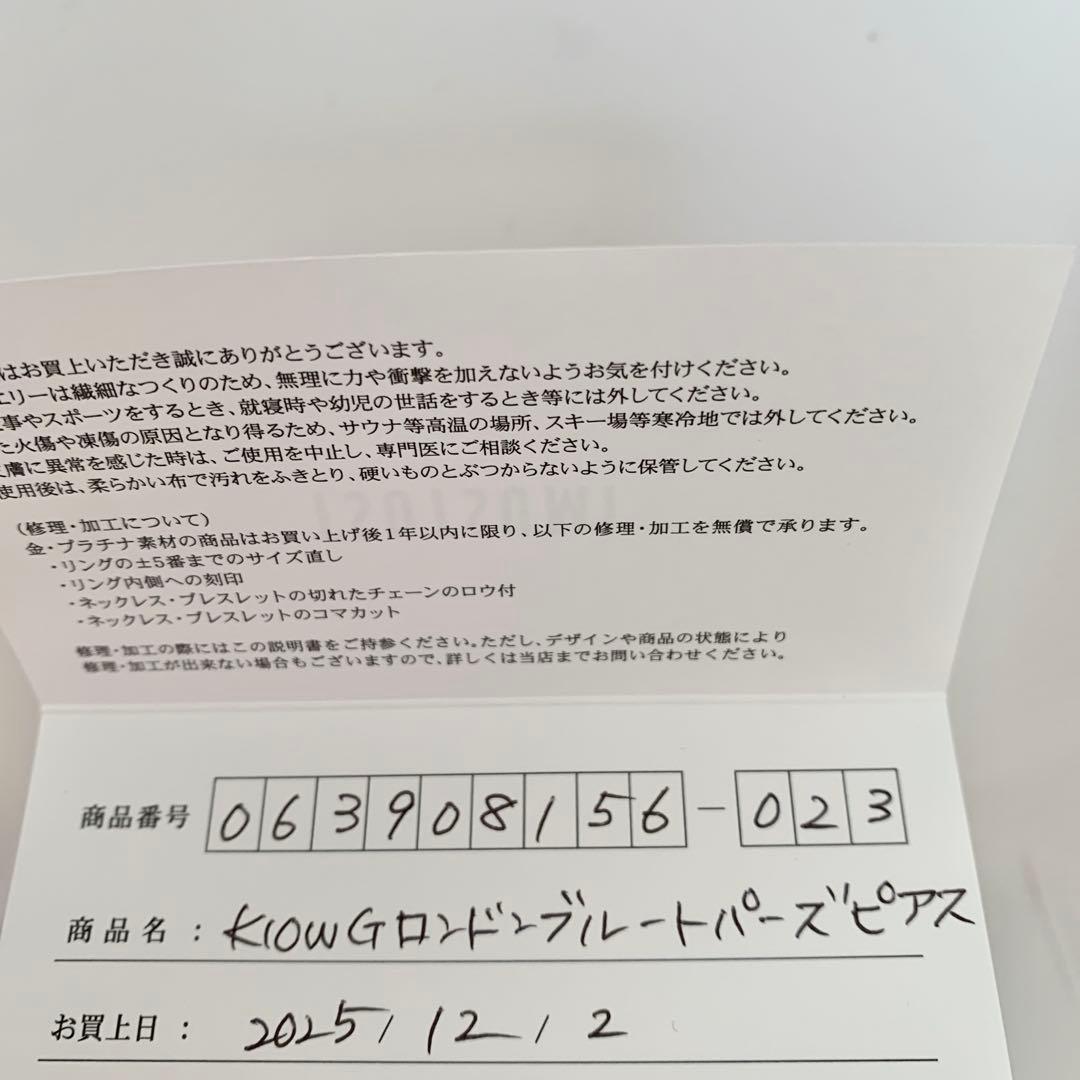 はお買上いただき誠にありがとうございます。
エリーは繊細なつくりのため、無理に力や衝撃を加えないようお気を付けください。
事やスポーツをするとき、就寝時や幼児の世話をするとき等には外してください。
た火傷や凍傷の原因となり得るため、サウナ等高温の場所、スキー場等寒冷地では外してください。
皮膚に異常を感じた時は、ご使用を中止し、専門医にご相談ください。
使用後は、柔らかい布で汚れをふきとり、硬いものとぶつからないように保管してください。
(修理・加工について)
金・プラチナ素材の商品はお買い上げ後1年以内に限り、以下の修理・加工を無償で承ります。
・リングの±5番までのサイズ直し
・リング内側への刻印
・ネックレス・ブレスレットの切れたチェーンのロウ付
・ネックレス・ブレスレットのコマカット
修理・加工の際にはこの説明書をご持参ください。ただし、デザインや商品の状態により
修理・加工が出来ない場合もございますので、詳しくは当店までお問い合わせください。
商品番号 063908156-023
商品名：K10WGロンドンブルートパーズピアス
お買上日：2025/12/2